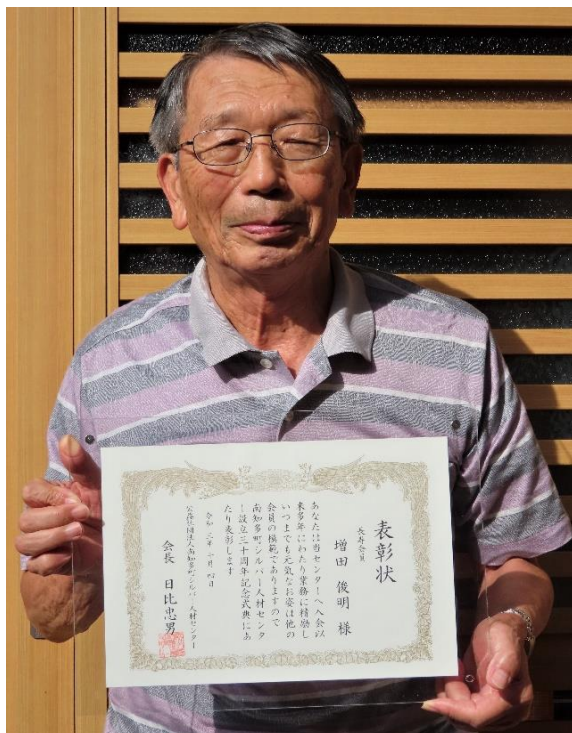 表彰状
長寿会員
増田 俊明 様
あなたは当センターへ入会以
来多年にわたり業務に精励し
いつまでも元気なお姿は他の
会員の模範でありますので
南知多町シルバー人材センタ
ー設立三十周年記念式典にあ
たり表彰します
公益社団法人南知多町シルバー人材センター
会長 日比忠男